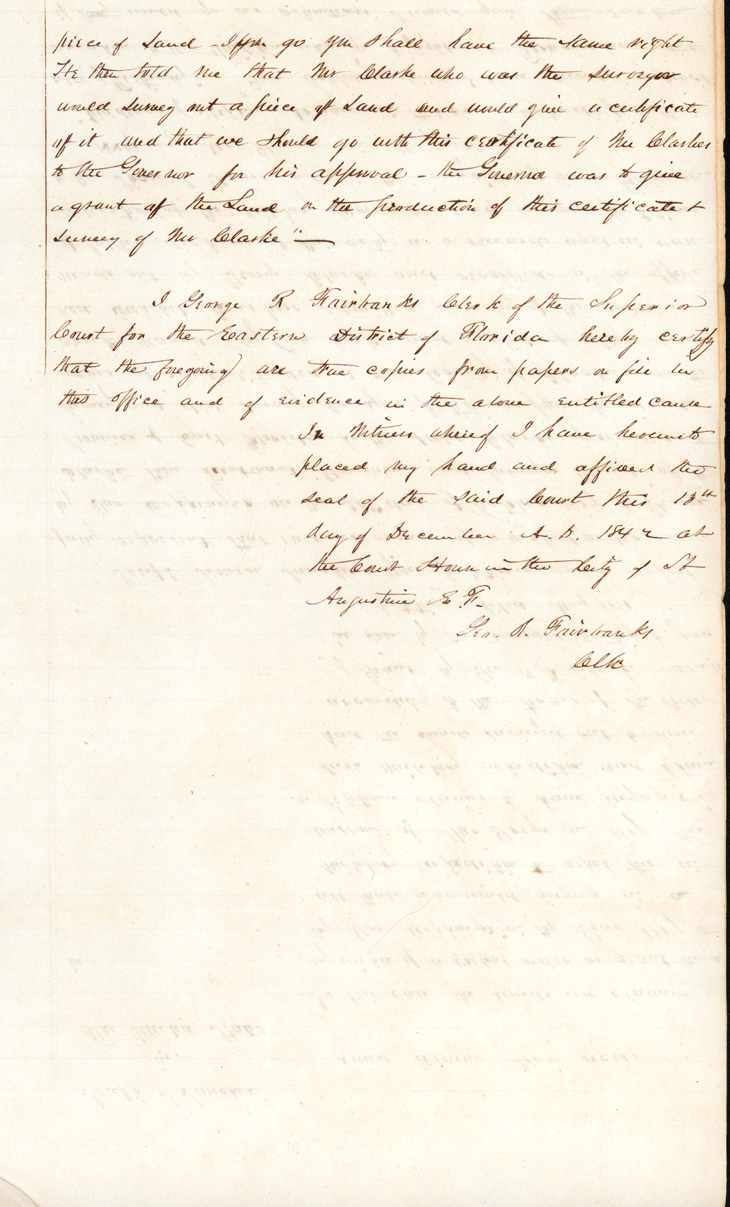 piece of Land - If you go you shall have the same right
He then told me that Mr Clarke who was the surveyor
would survey out a piece of Land and would give a certificate
of it and that we should go with this certificate of Mr Clarkes
to the Governor for his approval - the Governor was to give
a grant of the Land on the production of this certificate &
survey of Mr Clarke" —
I George R Fairbanks Clerk of the Superior
Court for the Eastern District of Florida hereby certify
that the foregoing are true copies from papers on file in
this office and of evidence in the above entitled cause
In Witness whereof I have hereunto
placed my hand and affixed the
seal of the said Court this 13th
day of December A.D. 1842 at
the Court House in the City of St
Augustine E.F.
Geo. R. Fairbanks
Clk